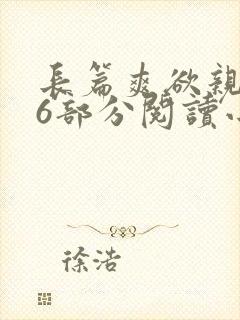 長篇爽欲親
6部分閱讀
徐浩